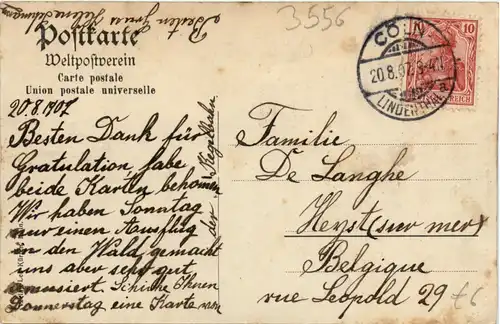 Besten Gruss
3556
Postkarte
Weltpostverein
Carte postale
Union postale universelle
CÖLN
20.8.07
LINDENTHAL
a
10
REICH
20.8.1907
Besten Dank für
Gratulation habe
beide Karten bekommen
Wir haben Sonntag
nur einen Ausflug
in den Wald gemacht
uns aber sehr gut
amusiert Schicke Ihnen
Donnerstag eine Karte von
der Kegelbahn
Familie
De Langhe
Heyst (sur mer)
Belgique
rue Leopold 29